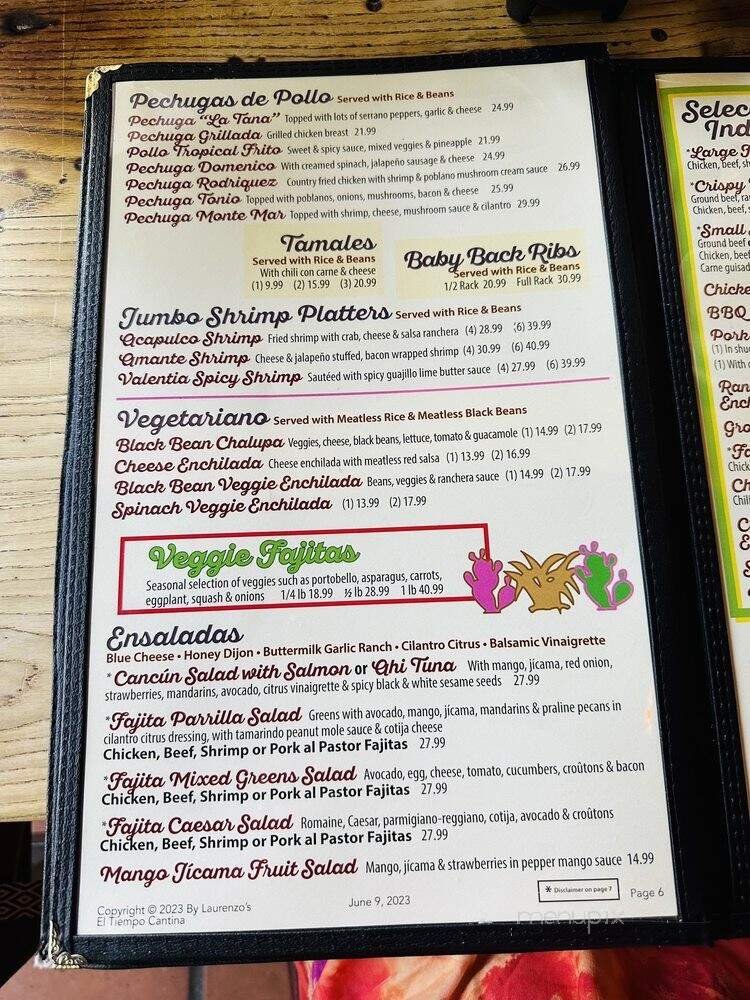 Pechugas de Pollo Served with Rice & Beans
Pechuga "La Tana" Topped with lots of serrano peppers, garlic & cheese 24.99
Pechuga Grillada Grilled chicken breast 21.99
Pollo Tropical Frito Sweet & spicy sauce, mixed veggies & pineapple 21.99
Pechuga Domenico With creamed spinach, jalapeño sausage & cheese 24.99
Pechuga Rodriquez Country fried chicken with shrimp & poblano mushroom cream sauce 26.99
Pechuga Tonio Topped with poblanos, onions, mushrooms, bacon & cheese 25.99
Pechuga Monte Mar Topped with shrimp, cheese, mushroom sauce & cilantro 29.99
Tamales
Served with Rice & Beans
With chili con carne & cheese
(1) 9.99 (2) 15.99 (3) 20.99
Baby Back Ribs
Served with Rice & Beans
1/2 Rack 20.99 Full Rack 30.99
Jumbo Shrimp Platters Served with Rice & Beans
Acapulco Shrimp Fried shrimp with crab, cheese & salsa ranchera (4) 28.99 (6) 39.99
Amante Shrimp Cheese & jalapeño stuffed, bacon wrapped shrimp (4) 30.99 (6) 40.99
Valentia Spicy Shrimp Sautéed with spicy guajillo lime butter sauce (4) 27.99 (6) 39.99
Vegetariano Served with Meatless Rice & Meatless Black Beans
Black Bean Chalupa Veggies, cheese, black beans, lettuce, tomato & guacamole (1) 14.99 (2) 17.99
Cheese Enchilada Cheese enchilada with meatless red salsa (1) 13.99 (2) 16.99
Black Bean Veggie Enchilada Beans, veggies & ranchera sauce (1) 14.99 (2) 17.99
Spinach Veggie Enchilada (1) 13.99 (2) 17.99
Veggie Fajitas
Seasonal selection of veggies such as portobello, asparagus, carrots,
eggplant, squash & onions 1/4 lb 18.99 ½ lb 28.99 1 lb 40.99
Ensaladas
Blue Cheese • Honey Dijon • Buttermilk Garlic Ranch • Cilantro Citrus • Balsamic Vinaigrette
*Cancún Salad with Salmon or Ahi Tuna With mango, jícama, red onion,
strawberries, mandarins, avocado, citrus vinaigrette & spicy black & white sesame seeds 27.99
*Fajita Parrilla Salad Greens with avocado, mango, jícama, mandarins & praline pecans in
cilantro citrus dressing, with tamarindo peanut mole sauce & cotija cheese
Chicken, Beef, Shrimp or Pork al Pastor Fajitas 27.99
*Fajita Mixed Greens Salad Avocado, egg, cheese, tomato, cucumbers, croûtons & bacon
Chicken, Beef, Shrimp or Pork al Pastor Fajitas 27.99
*Fajita Caesar Salad Romaine, Caesar, parmigiano-reggiano, cotija, avocado & croûtons
Chicken, Beef, Shrimp or Pork al Pastor Fajitas 27.99
Mango Jícama Fruit Salad Mango, jícama & strawberries in pepper mango sauce 14.99
Copyright © 2023 By Laurenzo's
El Tiempo Cantina
June 9, 2023
* Disclaimer on page 7
Page 6
menupix
*Large
Chicken, beef,
*Crispy
Ground beef,
Chicken, beef,
*Small
Ground beef
Chicken, beef
Carne guisad
BBQ
Pork
(1) In
(1) With